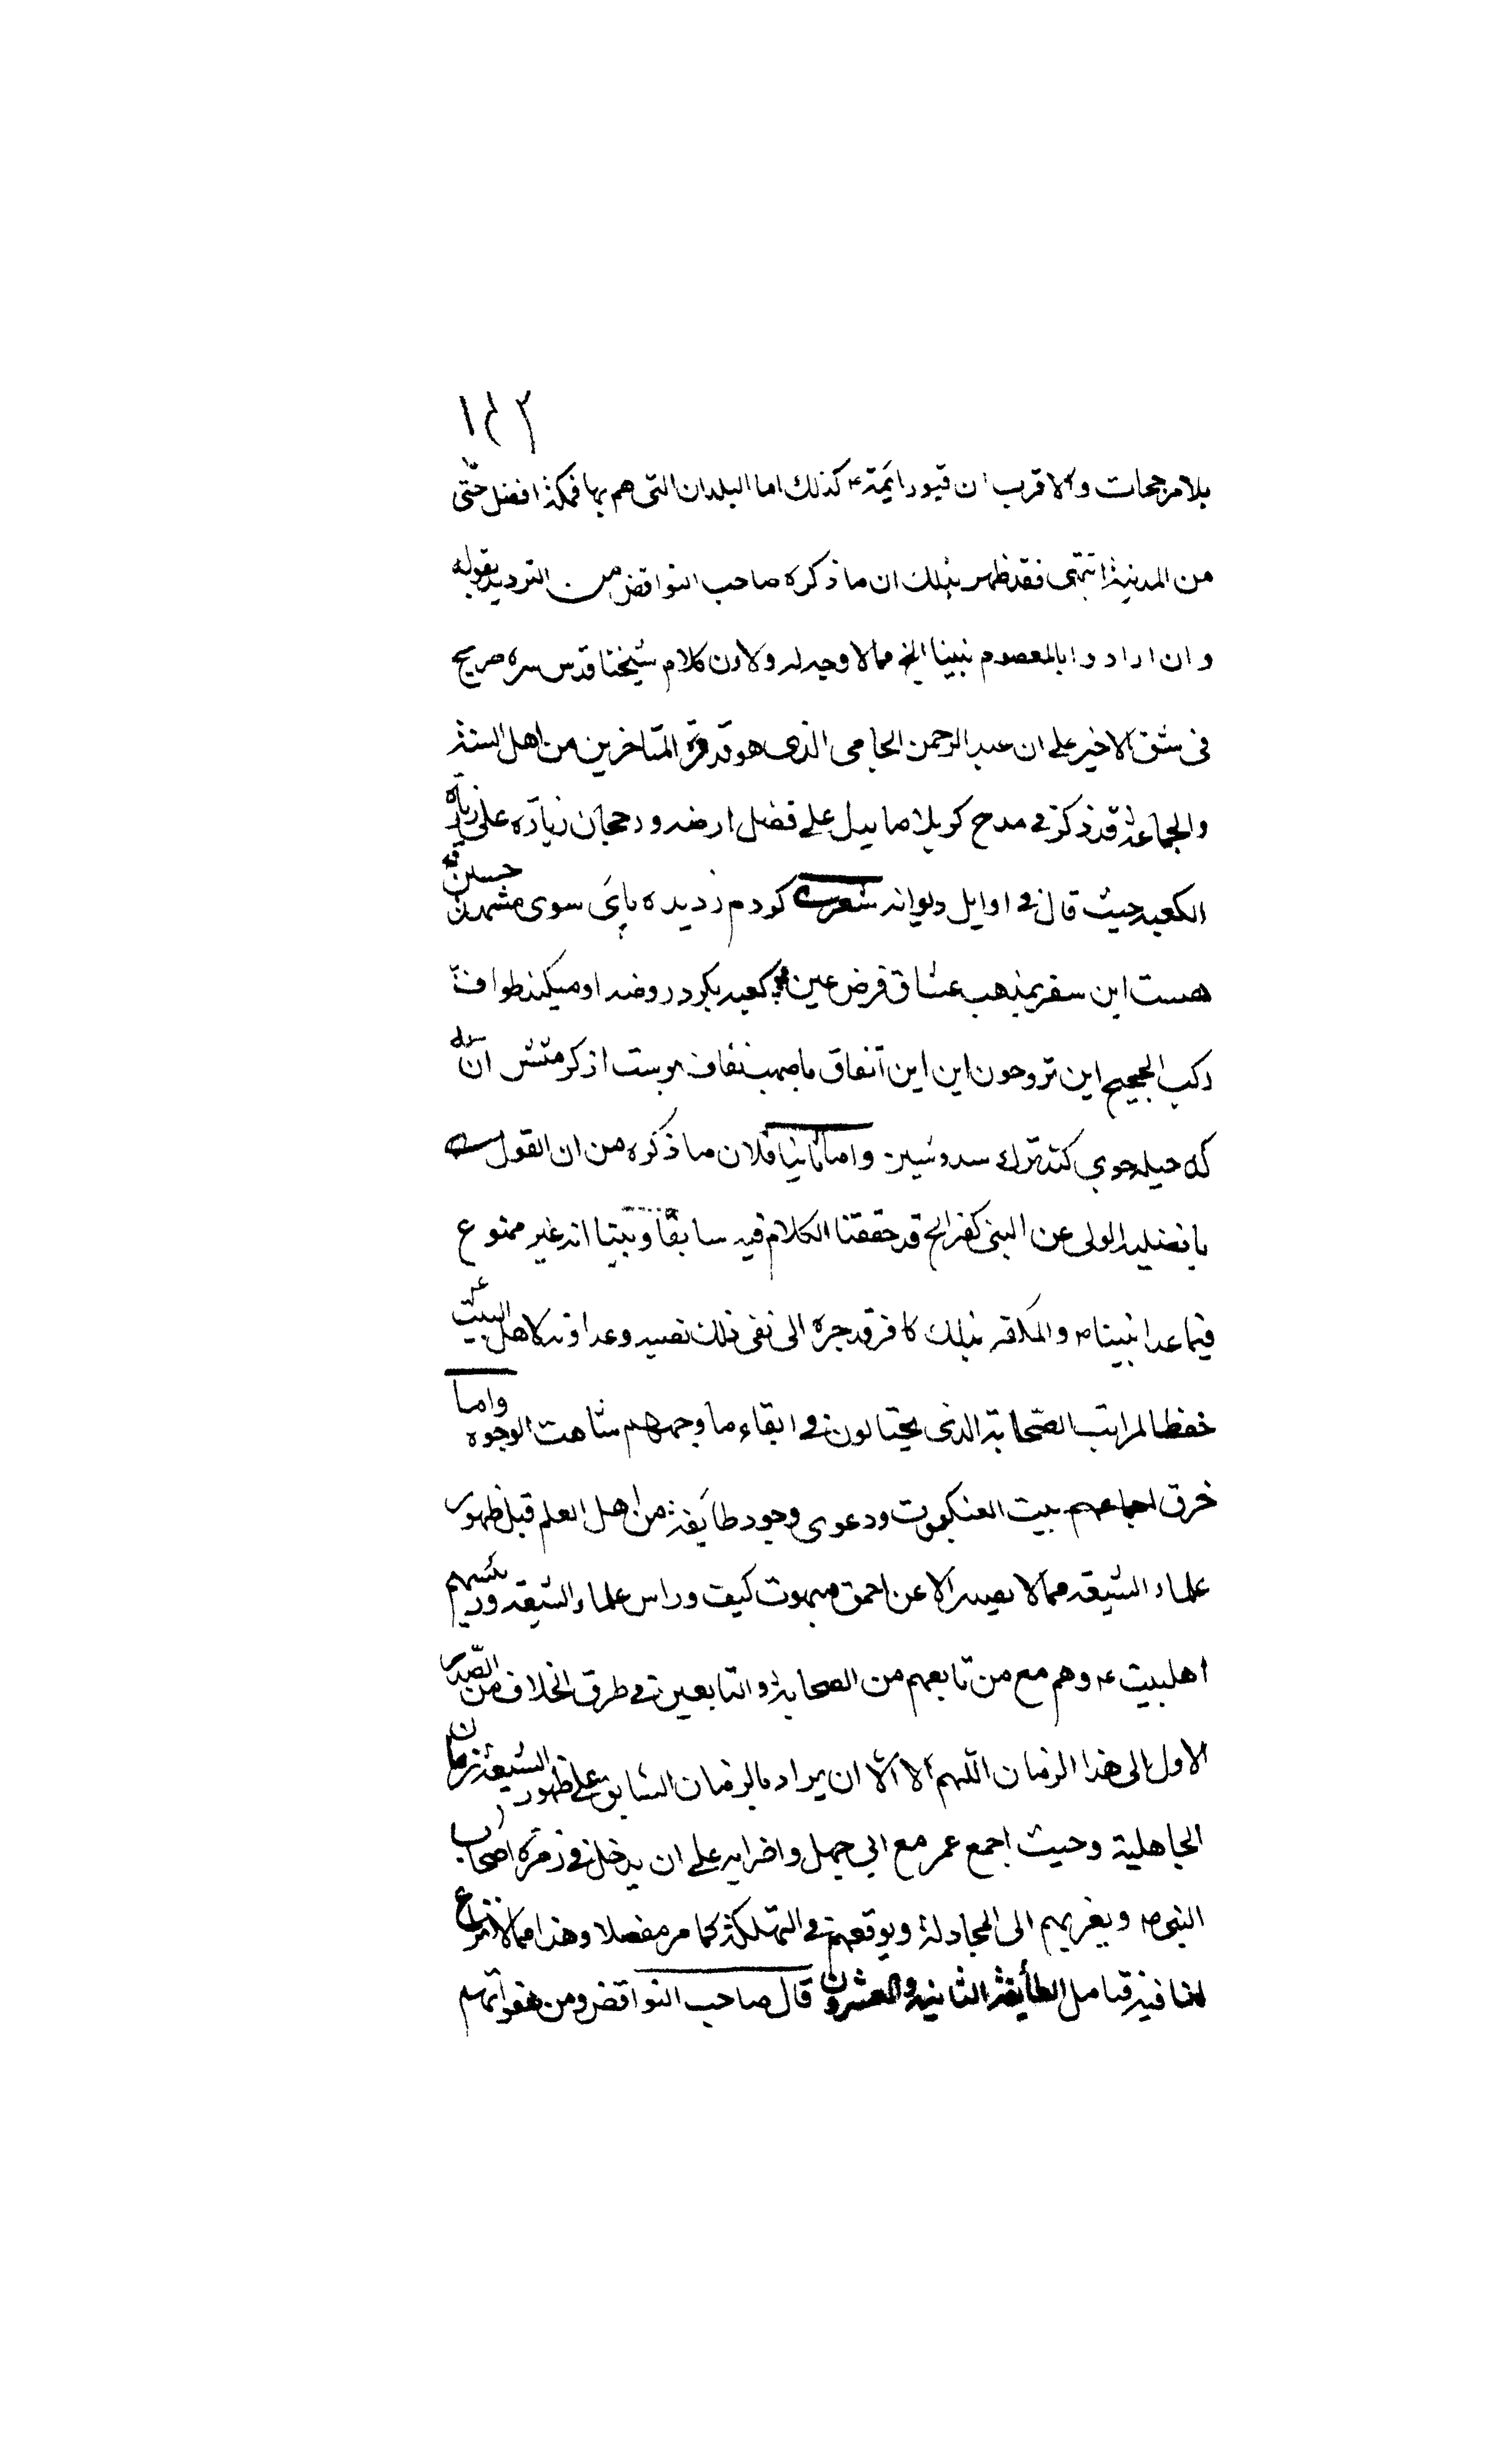 ١٤٢
بلا مرجحات والاقرب ان قبور ايمة ع كذلك اما البلدان التى هم بها فمكة افضل حتّى
من المدنية انتهى فقد ظهر بذلك ان ما ذكره صاحب النواقض من الترديد بقوله
وان ارادوا بالمعصوم نبينا الخ مما لا وجه له ولان كلام شيخنا قدس سره صريح
فى شق الاخير على ان عبد الرحمن الجامى الذى هو قدوة المتاخرين من اهل السنة
والجماعة قد ذكر فى مدح كربلا ما يدل على فضل ارضه ورجحان زيارته على زيارة
الكعبه حيث قال فى اوايل ديوانه شعر كردم ز ديده پاى سوى مشهد حسين
هست اين سفر بمذهب عشاق فرض عين كعبه بكرد روضه او ميكند طواف
ركب الحجيج اين تروحون اين اين
كه حيله جوى كند ترك سد وشين واما ثانيا فلان ما ذكره من ان القول
بافضليه الولى عن النبى كفر الخ قد حققنا الكلام فيه سابقا وبينا انه غير ممنوع
فيما عدا نبينا ص والمكفر بذلك كافر قد جره الى نفى ذلك نصبه وعداوته لاهل البيت ع
حفظا لمراتب الصّحابة الذى يحتالون فى ابقاء ماء وجههم شاهت الوجوه واما
خرق اجماعهم بيت العنكبوت ودعوى وجود طايفة من اهل العلم قبل ظهور
علماء الشيعه مما لا يصدر الا عن احمق مبهوت كيف وراس علماء الشيعه ورئيسهم
اهلبيت ع وهم مع من تابعهم من الصحابة والتابعين فى طرق الخلاف من الصّدر
الاول الى هذا الزمان اللّهم الا ان يراد بالزمان السّابق على ظهور الشيعة زمان
الجاهلية وحيث اجمع عمر مع ابى جهل واضرابه على ان يدخل فى زمرة اصحاب
النبى ص ويغريهم الى المجادلة ويوقعهم فى التهلكة كما مر مفصلا وهذا مما لا نزاع
لنا فيه فتامل الطايفة الثانيه والعشرون قال صاحب النواقض ومن هفواتهم